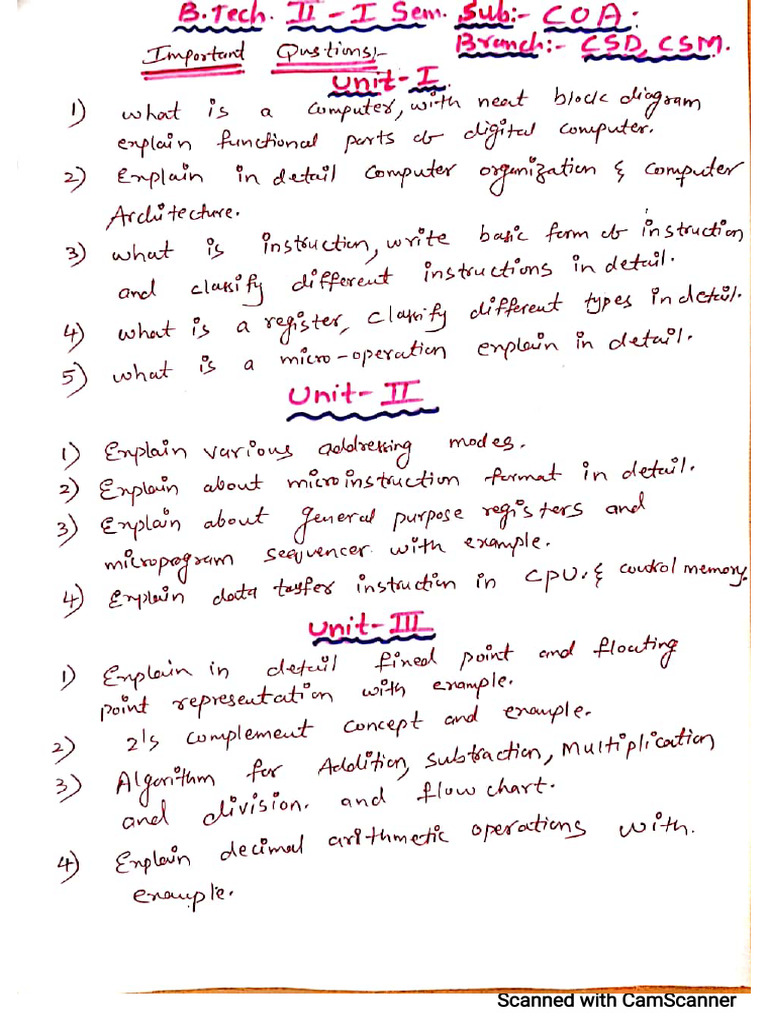 B.Tech. II - I Sem. Sub:- COA.
Important Qustions:- Branch:- CSD, CSM.
Unit-I
1) what is a computer, with neat block diagram
explain functional parts of digital computer.
2) Explain in detail computer organization & computer
Architecture.
3) what is instruction, write basic form of instruction
and classify different instructions in detail.
4) what is a register, classify different types in detail.
5) what is a micro-operation explain in detail.
Unit-II
1) Explain various addressing modes.
2) Explain about microinstruction format in detail.
3) Explain about general purpose registers and
microprogram sequencer with example.
4) Explain data tasfer instruction in CPU. & control memory.
Unit-III
1) Explain in detail fixed point and floating
point representation with example.
2) 2's complement concept and example.
3) Algorithm for Addition, subtraction, Multiplication
and division. and flow chart.
4) Explain decimal arithmetic operations with.
example.
Scanned with CamScanner